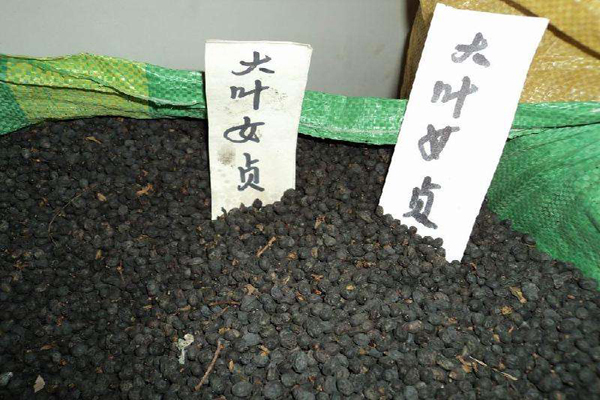 大叶女贞
大叶女贞